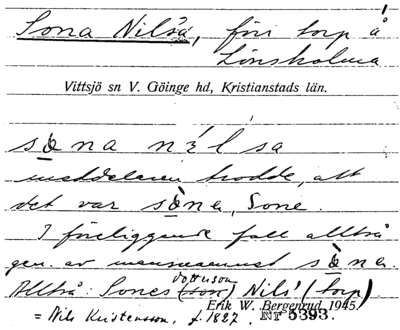 Sona Nilsa, förr torp å
Linsholma
Vittsjö sn V. Göinge hd, Kristianstads län.
såna nilsa
meddelaren trodde, att
det var såna, Sone.
I föreliggande fall alltså
gen. av mansnamnet såna.
Alltså: Sones (torp) Nils' (torp)
= Nils Kristensson, f. 1827.
Erik W. Bergenrud 1945
Nr 5393.